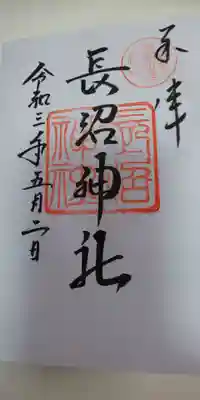 奉拝
長沼神社
長沼神社
令和三年五月二日